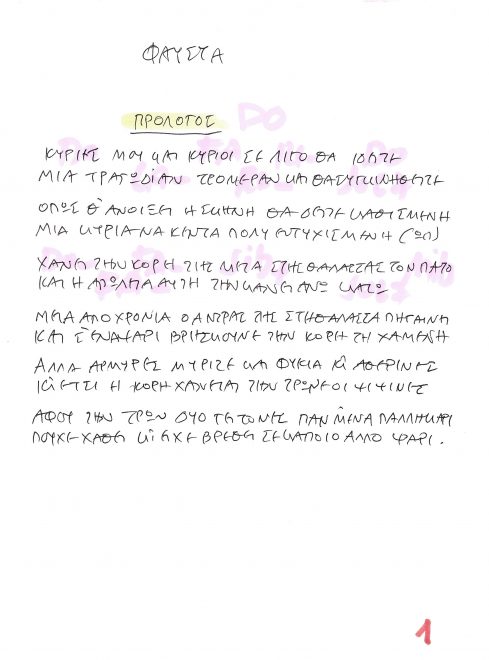 ΦΑΥΣΤΑ
ΠΡΟΛΟΓΟΣ
ΚΥΡΙΕΣ ΜΟΥ ΚΑΙ ΚΥΡΙΟΙ ΣΕ ΛΙΓΟ ΘΑ ΙΔΕΙΤΕ
ΜΙΑ ΤΡΑΓΩΔΙΑΝ ΤΡΟΜΕΡΑΝ ΚΑΙ ΘΑ ΣΥΓΚΙΝΗΘΕΙΤΕ
ΟΠΩΣ Θ' ΑΝΟΙΞΕΙ Η ΣΚΗΝΗ ΘΑ ΔΕΙΤΕ ΚΑΘΙΣΜΕΝΗ
ΜΙΑ ΚΥΡΙΑ ΝΑ ΚΕΝΤΑ ΠΟΛΥ ΕΥΤΥΧΙΣΜΕΝΗ
ΧΑΝΕΙ ΤΗΝ ΚΟΡΗ ΤΗΣ ΜΕΣΑ ΣΤΗΣ ΘΑΛΑΣΣΑΣ ΤΟΝ ΠΑΤΟ
ΚΑΙ Η ΑΠΩΛΕΙΑ ΑΥΤΗ ΤΗΝ ΚΑΝΕΙ ΑΝΩ ΚΑΤΩ
ΜΕΤΑ ΑΠΟ ΧΡΟΝΙΑ Ο ΑΝΤΡΑΣ ΤΗΣ ΣΤΗ ΘΑΛΑΣΣΑ ΠΗΓΑΙΝΕΙ
ΚΑΙ Σ' ΕΝΑ ΨΑΡΙ ΒΡΙΣΚΟΥΝΕ ΤΗΝ ΚΟΡΗ ΤΗ ΧΑΜΕΝΗ
ΑΛΛΑ ΑΡΜΥΡΕΣ ΜΥΡΙΖΕ ΚΑΙ ΦΥΚΙΑ ΚΙ ΑΘΕΡΙΝΕΣ
ΚΙ ΕΤΣΙ Η ΚΟΡΗ ΧΑΝΕΤΑΙ ΤΗΝ ΤΡΩΝΕ ΟΙ ΨΙΨΙΝΕΣ
ΑΦΟΥ ΤΗΝ ΤΡΩΝ ΔΥΟ ΓΕΙΤΟΝΕΣ ΠΑΝ ΜΕ ΝΑ ΠΑΛΛΗΚΑΡΙ
ΠΟΥΧΕ ΧΑΘΕΙ ΚΙ ΕΙΧΕ ΒΡΕΘΕΙ ΣΕ ΚΑΠΟΙΟ ΑΛΛΟ ΨΑΡΙ.
1